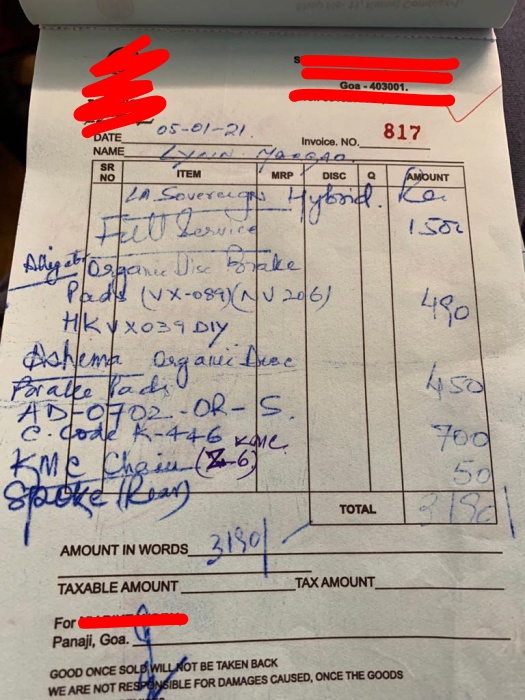 Goa - 403001.
DATE 05-01-21.
Invoice. NO. 817
NAME Lynn Margao.
SR NO ITEM MRP DISC Q AMOUNT
LA Sovereign Hybrid.
Full Service 1500
Alligator Organic Disc Brake
Pads (VX-089)(NV206) 490
HKVX039 DIY
Ashema Organic Disc
Brake Pads 450
AD-0702-OR-S.
C. Code K-446 KMC 700
KMC Chain (Z-6)
Spoke (Rear) 50
TOTAL 3190/
AMOUNT IN WORDS 3190/
TAXABLE AMOUNT TAX AMOUNT
For
Panaji, Goa.
GOOD ONCE SOLD WILL NOT BE TAKEN BACK
WE ARE NOT RESPONSIBLE FOR DAMAGES CAUSED, ONCE THE GOODS